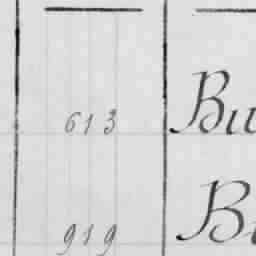 613 Bu
919 B